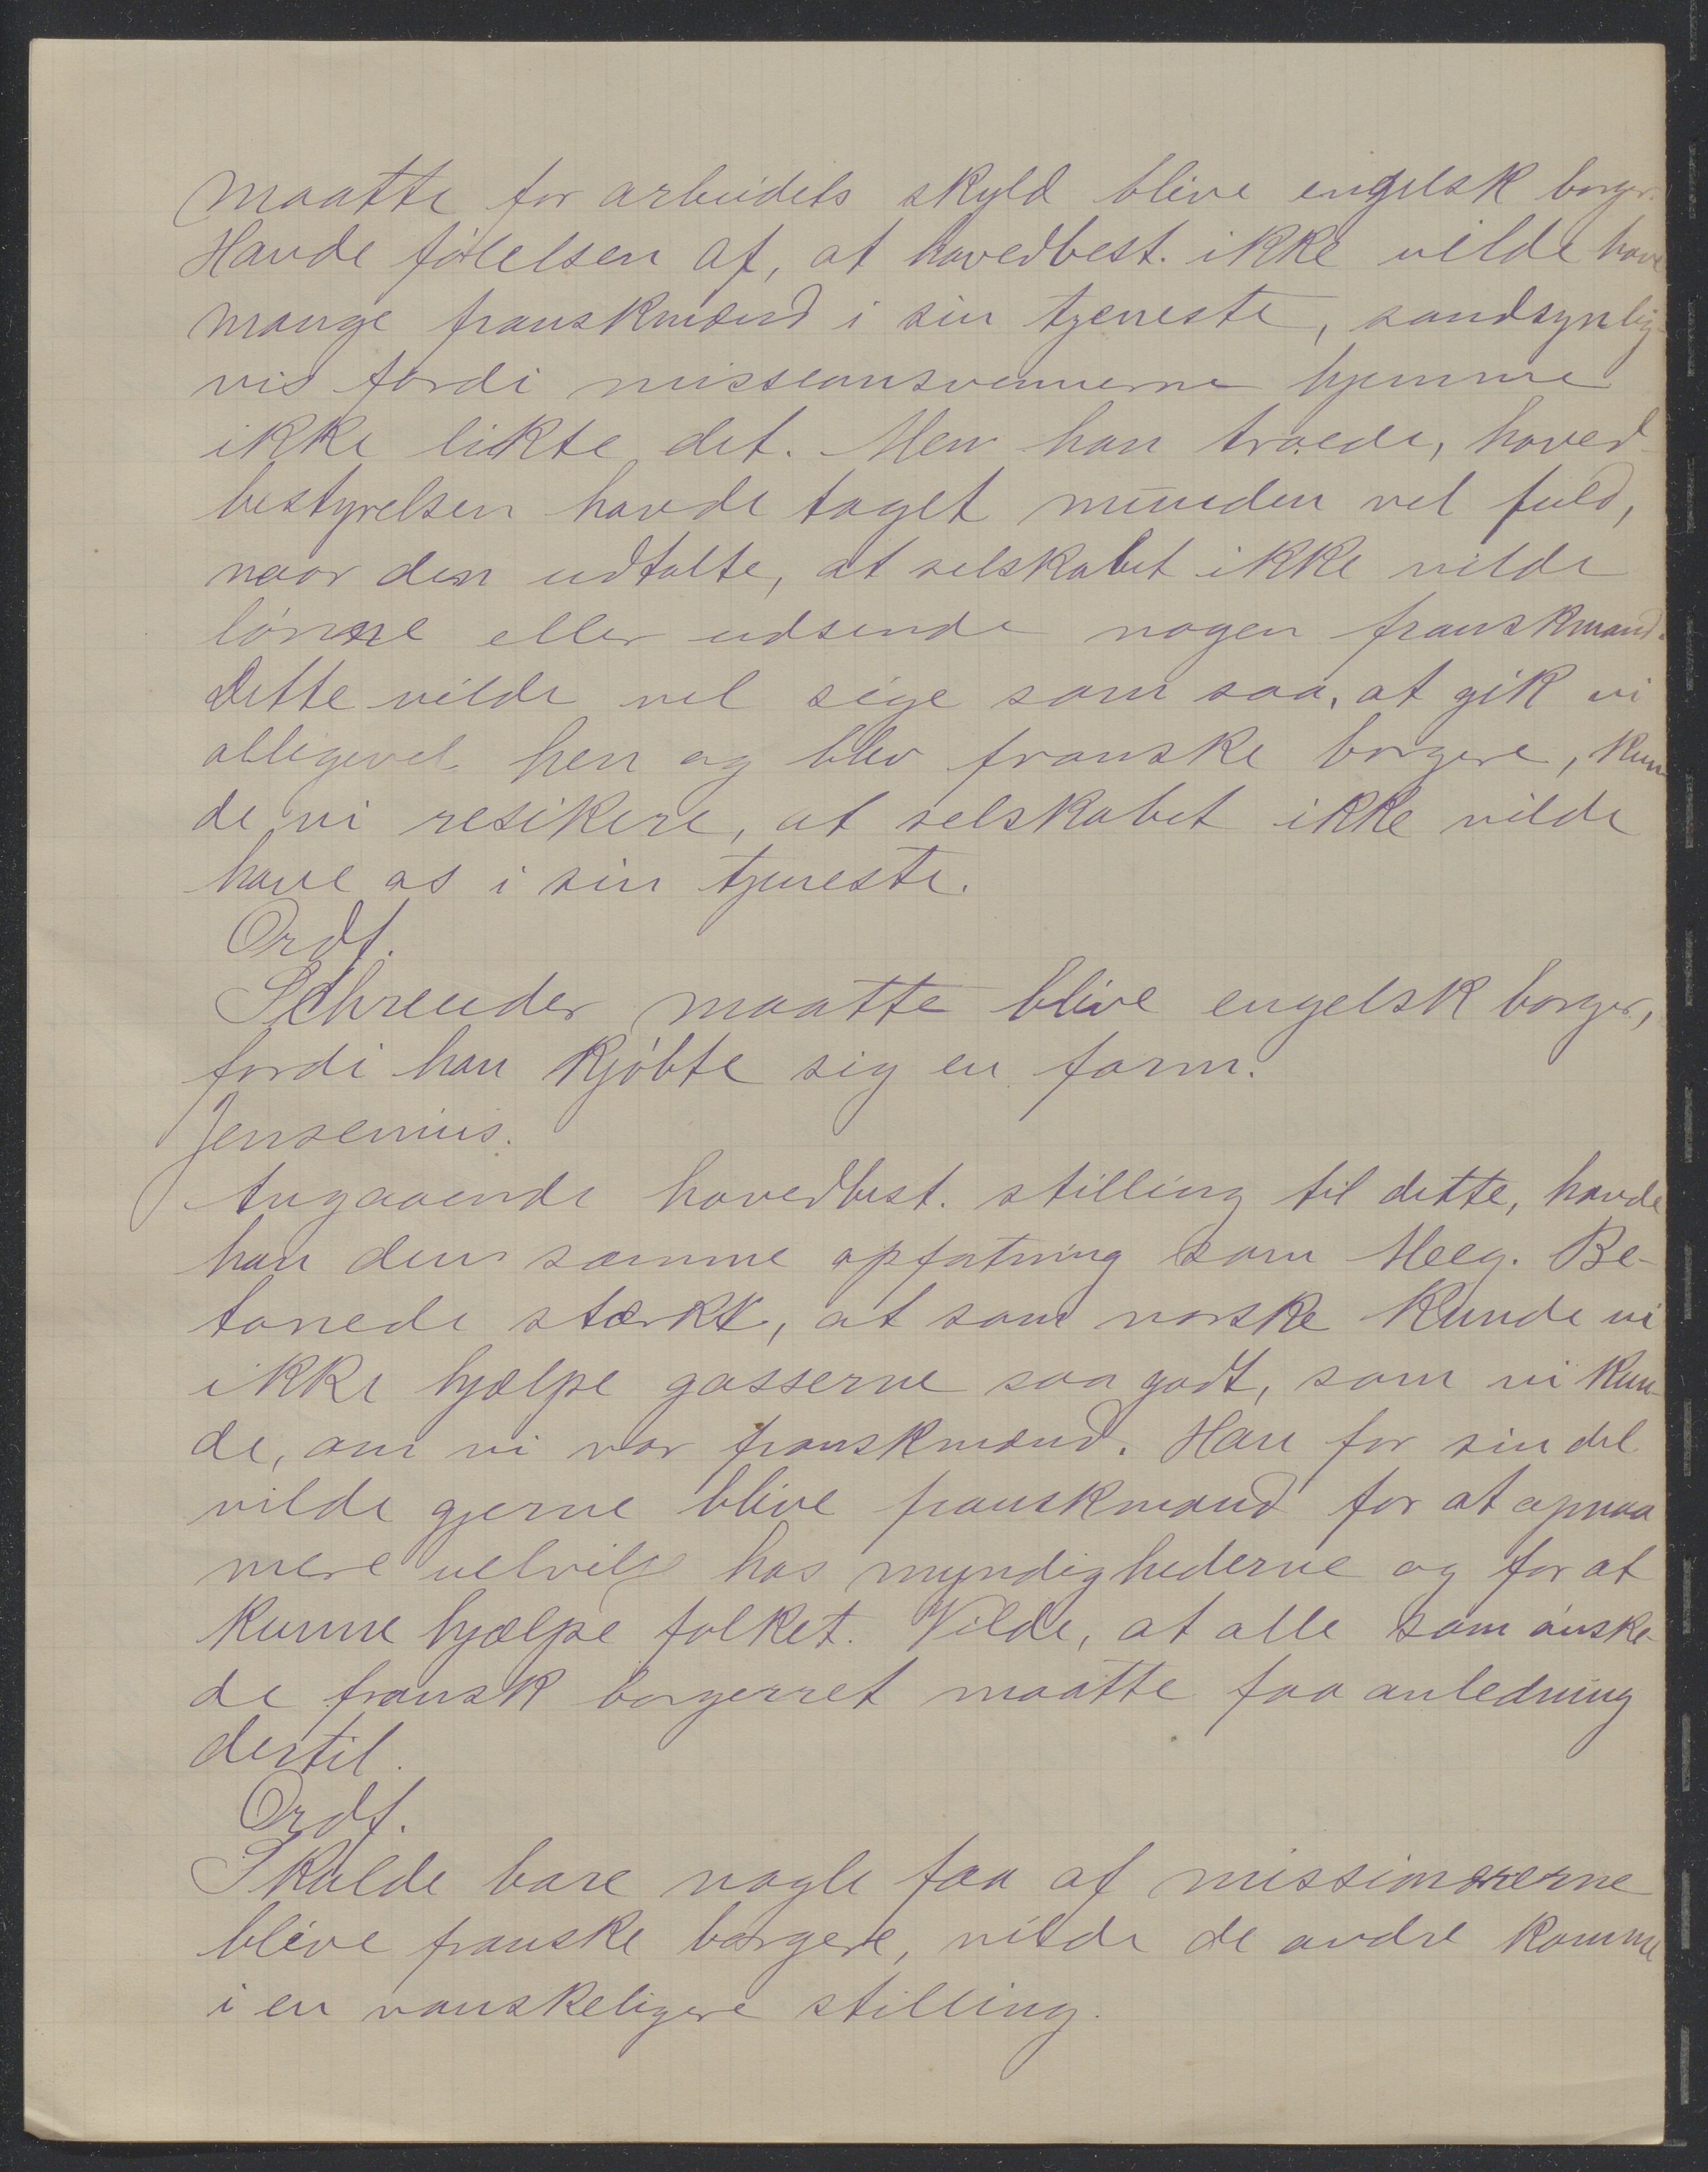 maatte for arbeidets skyld blive engelsk borger.
Havde følelsen af, at hovedbest. ikke vilde have
mange franskmænd i sin tjeneste, sandsynlig-
vis fordi missionsvennerne hjemme
ikke likte det. Men han troede, hoved-
bestyrelsen havde taget munden vel fuld,
naar den udtalte, at selskabet ikke vilde
lønne eller udsende nogen franskmand.
Dette vilde vel sige som saa, at gik vi
alligevel hen og blev franske borgere, kun-
de vi resikere, at selskabet ikke vilde
have os i sin tjeneste.
Ordf.
Schreuder maatte blive engelsk borger,
fordi han kjøbte sig en farm.
Jensenius.
Angaaende hovedbest. stilling til dette, havde
han den samme opfatning som Meeg. Be-
tonede stærkt, at som norske kunde vi
ikke hjælpe gasserne saa godt, som vi kun-
de, om vi var franskmænd. Han for sin del
vilde gjerne blive franskmand for at opnaa
mere velvilje hos myndighederne og for at
kunne hjælpe folket. Vilde, at alle som ønske-
de fransk borgerret maatte faa anledning
dertil.
Ordf.
Skulde bare nogle faa af missionærerne
blive franske borgere, vilde de andre komme
i en vanskeligere stilling.